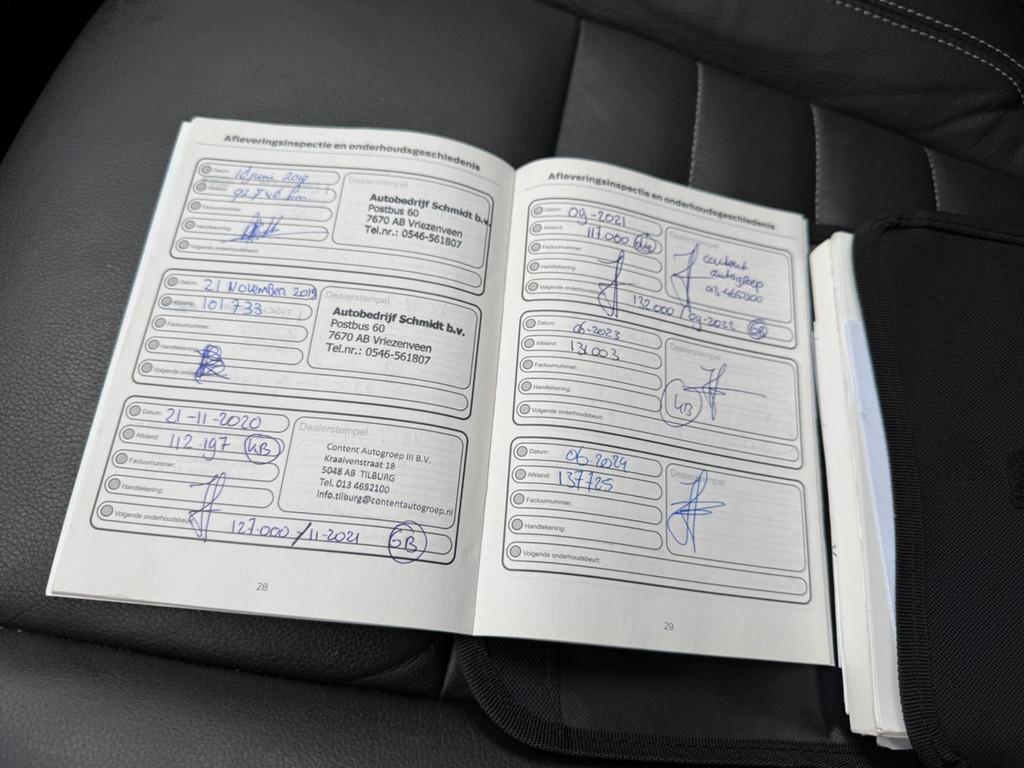 Afleveringsinspectie en onderhoudsgeschiedenis
Datum: 18 juni 2019
Afstand: 92746 km
Factuurnummer:
Handtekening:
Volgende onderhoudsbeurt:
Dealerstempel
Autobedrijf Schmidt b.v.
Postbus 60
7670 AB Vriezenveen
Tel.nr.: 0546-561807
Datum: 21 November 2019
Afstand: 101.733
Factuurnummer:
Handtekening:
Volgende onderhoudsbeurt:
Dealerstempel
Autobedrijf Schmidt b.v.
Postbus 60
7670 AB Vriezenveen
Tel.nr.: 0546-561807
Datum: 21-11-2020
Afstand: 112.197 KB
Factuurnummer:
Handtekening:
Volgende onderhoudsbeurt: 127.000 / 11-2021 GB
Dealerstempel
Content Autogroep III B.V.
Kraaivenstraat 18
5048 AB TILBURG
Tel. 013 4652100
info.tilburg@contentautogroep.nl
28
Afleveringsinspectie en onderhoudsgeschiedenis
Datum: 09-2021
Afstand: 117.000
Factuurnummer:
Handtekening:
Volgende onderhoudsbeurt: 132.000 / 09-2023 GB
Dealerstempel
Content
autogroep
013-4652100
Datum: 06-2023
Afstand: 131.003
Factuurnummer:
Handtekening:
Volgende onderhoudsbeurt:
Dealerstempel
KB
Datum: 06-2024
Afstand: 137725
Factuurnummer:
Handtekening:
Volgende onderhoudsbeurt:
29